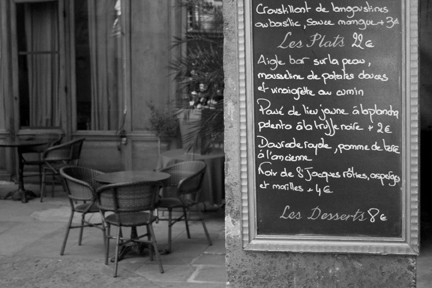 Croustillant de langoustines
au basilic, sauce mangue + 3€
Les Plats 22€
Aigle bar sur la peau,
mousseline de patates douces
et vinaigrette au cumin
Pavé de lieu jaune à la plancha
polenta à la truffe noire + 2€
Daurade royale, pomme de terre
à l'ancienne
Noix de St Jacques rôties, asperges
et morilles + 4€
Les Desserts 8€